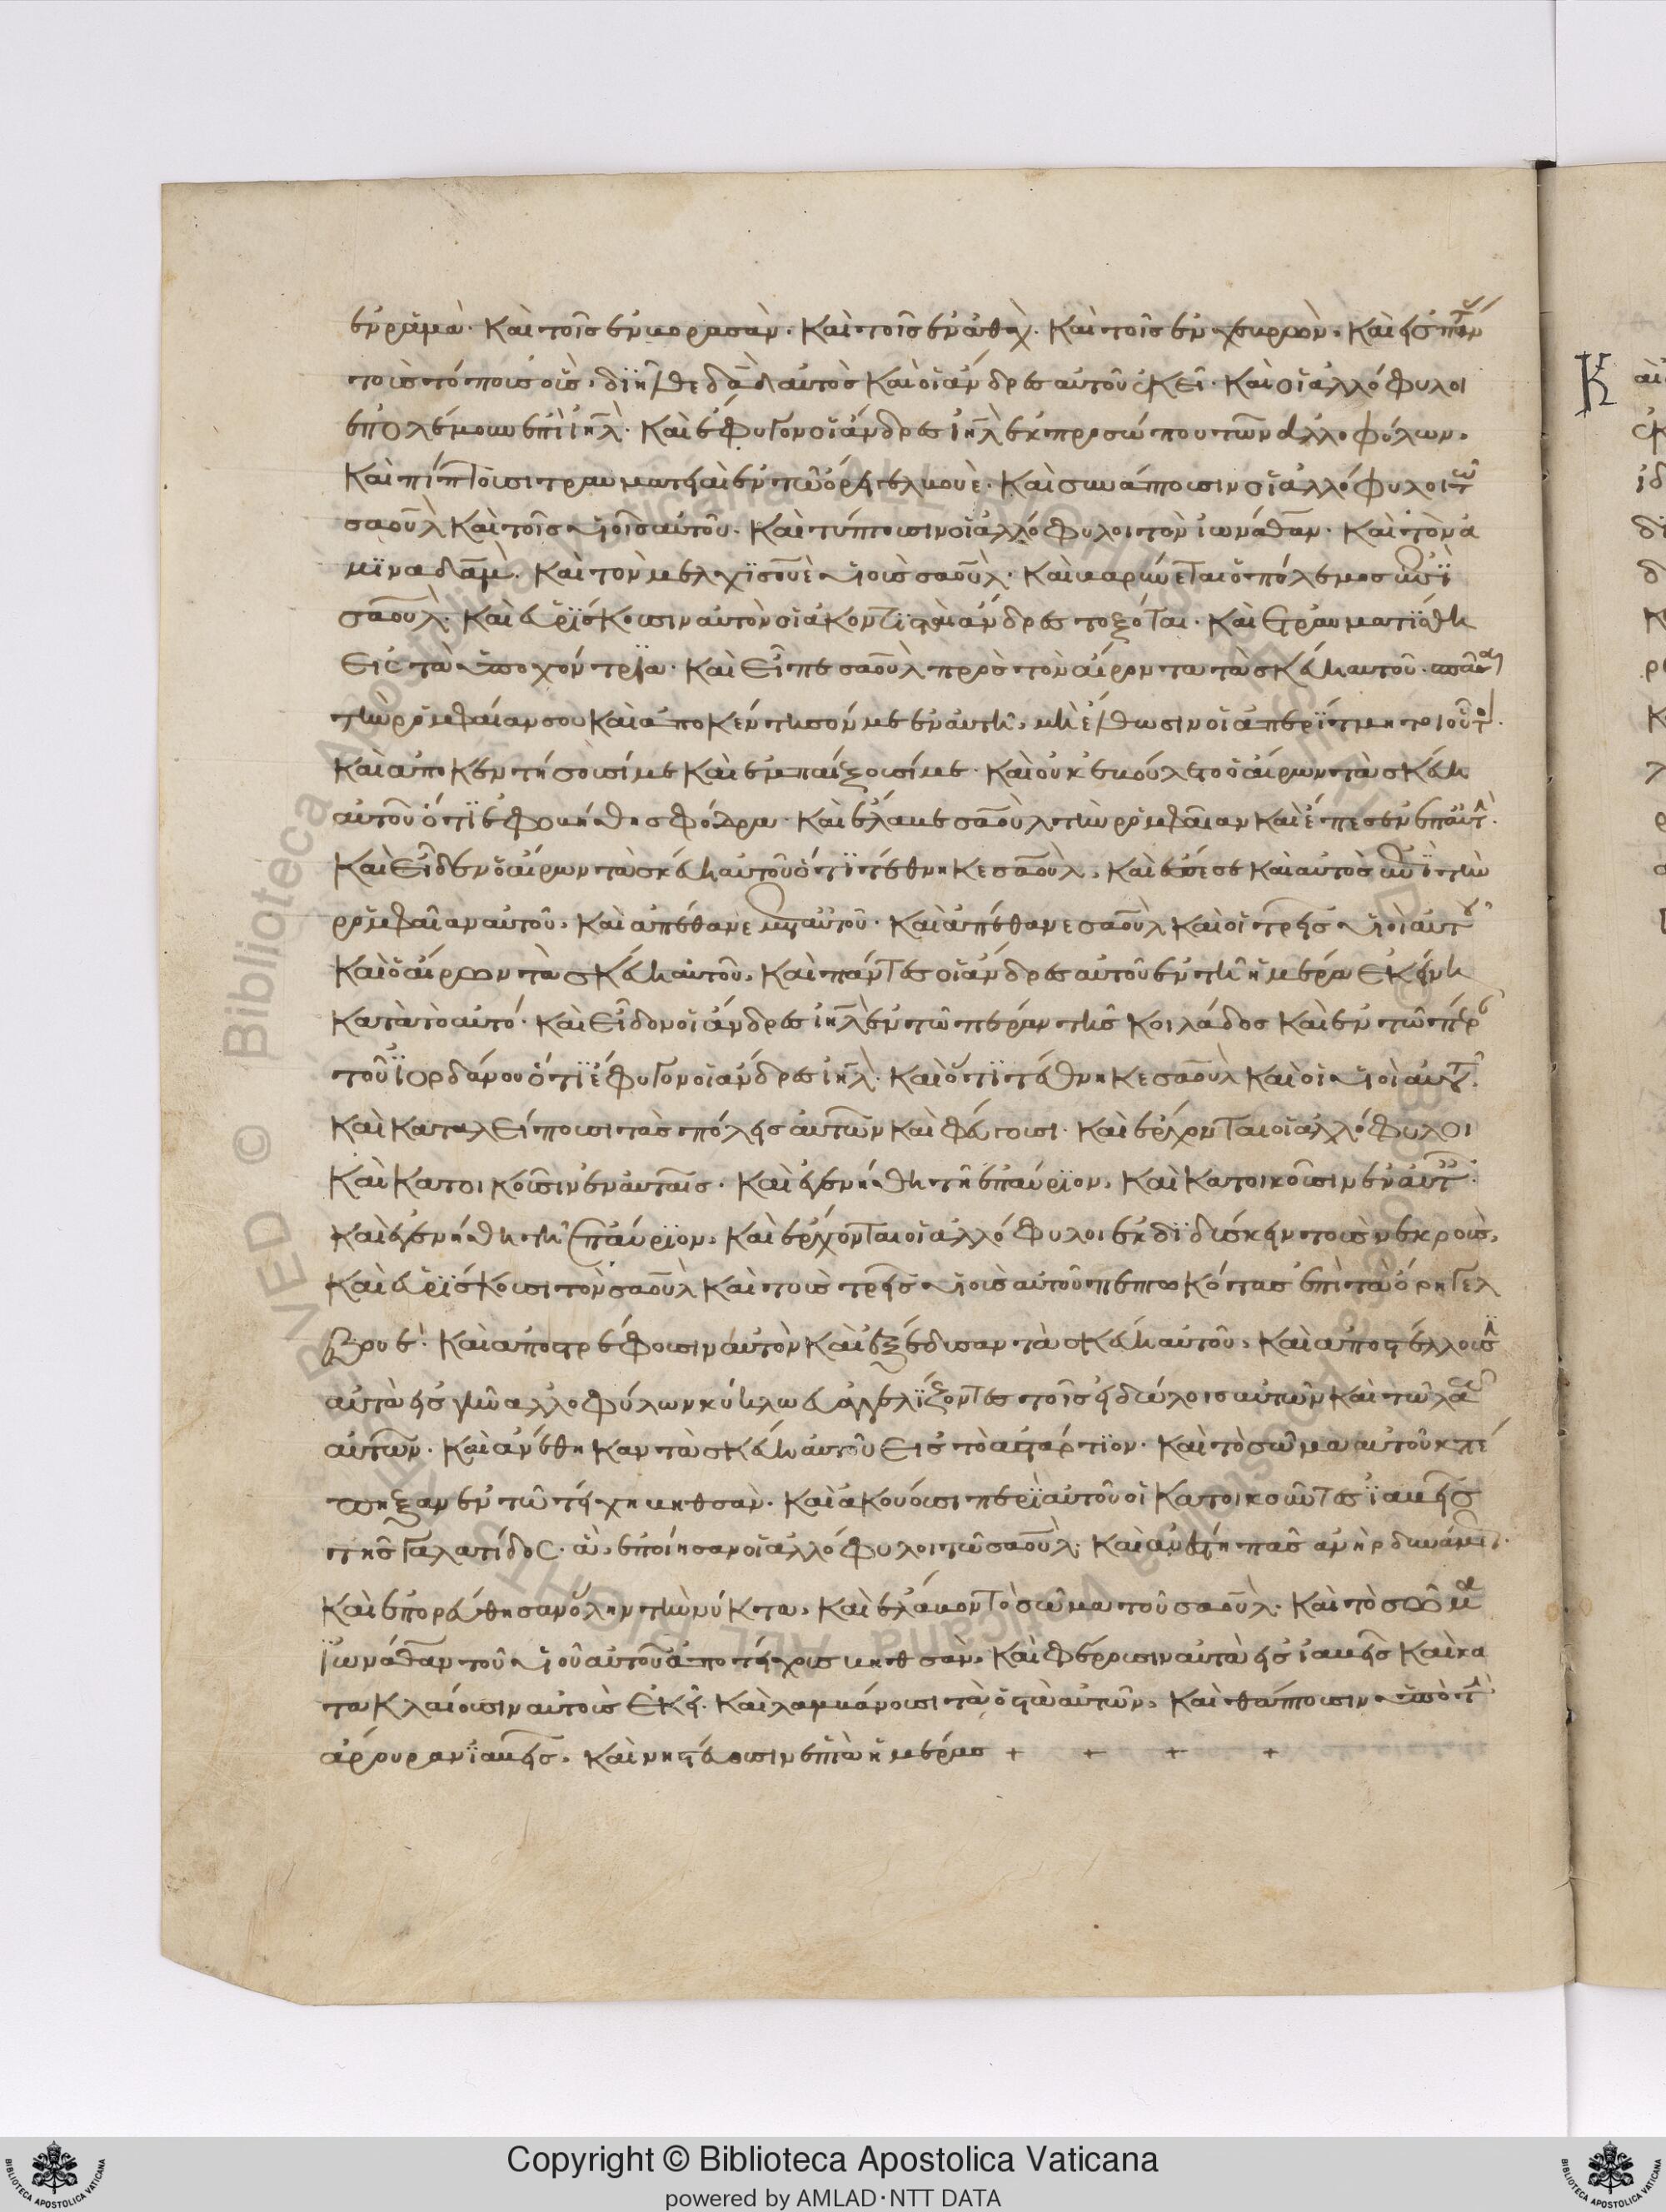 ἐν ραμὰ· Καὶ τοῖς ἐν βορασὰν· Καὶ τοῖς ἐν ἀθὴχ· Καὶ τοῖς ἐν χεβρὼν· Καὶ εἰς
τοὺς τόπους οὓς διῆλθε δαδ αὐτὸς Καὶ οἱ ἄνδρες αὐτοῦ ἐκεῖ· Καὶ οἱ ἀλλόφυλοι
ἐπολέμουν ἐπὶ ἰηλ· Καὶ ἔφυγον οἱ ἄνδρες ἰηλ ἐκ προσώπου τῶν ἀλλοφύλων·
Καὶ πίπτουσι τραυματίαι ἐν τῶ ὄρει γελβουὲ· Καὶ συνάπτουσιν οἱ ἀλλόφυλοι τῶ
σαοὺλ Καὶ τοῖς υἱοῖς αὐτοῦ· Καὶ τύπτουσιν οἱ ἀλλόφυλοι τὸν ἰωνάθαν· Καὶ τὸν ἀ
μιναδὰμ· Καὶ τὸν μελχισουὲ υἱοὺς σαοὺλ· Καὶ βαρύνεται ὁ πόλεμος ἐπὶ
σαοὺλ· Καὶ εὑρίσκουσιν αὐτὸν οἱ ἀκοντισταὶ ἄνδρες τοξόται· Καὶ ἐτραυματίσθη
εἰς τὰ ὑποχόντρια· Καὶ εἶπε σαοὺλ πρὸς τὸν αἴροντα τὰ σκεύη αὐτοῦ·
τὴν ρομφαίαν σου Καὶ ἀποκέντησόν με ἐν αὐτῆ· μὴ ἔλθωσιν οἱ ἀπερίτμητοι οὗτοι·
Καὶ ἀποκεντήσουσί με Καὶ ἐμπαίξουσί με· Καὶ οὐκ ἐβούλετο ὁ αἴρων τὰ σκεύη
αὐτοῦ ὅτι ἐφοβήθη σφόδρα· Καὶ ἔλαβε σαοὺλ τὴν ρομφαίαν Καὶ ἔπεσεν ἐπ' αὐτ·
Καὶ εἶδεν ὁ αἴρων τὰ σκεύη αὐτοῦ ὅτι τέθνηκε σαοὺλ· Καὶ ἔπεσε Καὶ αὐτὸς ἐπὶ τὴν
ρομφαίαν αὐτοῦ· Καὶ ἀπέθανε μετ' αὐτοῦ· Καὶ ἀπέθανε σαοὺλ Καὶ οἱ τρεῖς υἱοὶ αὐτοῦ
Καὶ ὁ αἴρων τὰ σκεύη αὐτοῦ· Καὶ πάντες οἱ ἄνδρες αὐτοῦ ἐν τῆ ἡμέρα ἐκείνη
κατὰ τὸ αὐτό· Καὶ εἶδον οἱ ἄνδρες ἰηλ ἐν τῶ πέραν τῆς κοιλάδος Καὶ ἐν τῶ πέρ
τοῦ ἰορδάνου ὅτι ἔφυγον οἱ ἄνδρες ἰηλ· Καὶ ὅτι τέθνηκε σαοὺλ Καὶ οἱ υἱοὶ αὐτοῦ·
Καὶ καταλείπουσι τὰς πόλεις αὐτῶν Καὶ φεύγουσι· Καὶ ἔρχονται οἱ ἀλλόφυλοι
Καὶ κατοικοῦσιν ἐν αὐταῖς· Καὶ ἐγενήθη τῆ ἐπαύριον· Καὶ κατοικοῦσιν ἐν αὐτ·
Καὶ ἐγενήθη τῆ ἐπαύριον· Καὶ ἔρχονται οἱ ἀλλόφυλοι ἐκδιδύσκειν τοὺς νεκρούς·
Καὶ εὑρίσκουσι τὸν σαοὺλ Καὶ τοὺς τρεῖς υἱοὺς αὐτοῦ πεπτωκότας ἐπὶ τὰ ὄρη γελ
βουέ· Καὶ ἀποστρέφουσιν αὐτὸν Καὶ ἐξέδυσαν τὰ σκεύη αὐτοῦ· Καὶ ἀποστέλλουσιν
αὐτὰ εἰς γῆν ἀλλοφύλων κύκλω εὐαγγελίζοντες τοῖς εἰδώλοις αὐτῶν Καὶ τῶ λαῶ
αὐτῶν· Καὶ ἀνέθηκαν τὰ σκεύη αὐτοῦ εἰς τὸ ἀσταρτιον· Καὶ τὸ σῶμα αὐτοῦ κατέ
πηξαν ἐν τῶ τείχη βηθσάν· Καὶ ἀκούουσι περὶ αὐτοῦ οἱ κατοικοῦντες ἰαβεῖς
τῆς γαλατίδος· ἃ ἐποίησαν οἱ ἀλλόφυλοι τῶ σαοὺλ· Καὶ ἀνέστη πᾶς ἀνὴρ δυνάμεως·
Καὶ ἐπορεύθησαν ὅλην τὴν νύκτα· Καὶ ἔλαβον τὸ σῶμα τοῦ σαοὺλ· Καὶ τὸ σῶμα
ἰωνάθαν τοῦ υἱοῦ αὐτοῦ ἀπὸ τείχους βηθσάν· Καὶ φέρουσιν αὐτὰ εἰς ἰαβεῖς Καὶ κα
τακλαίουσιν αὐτοὺς ἐκεῖ· Καὶ λαμβάνουσι τὰ ὀστᾶ αὐτῶν· Καὶ θάπτουσιν ὑπὸ τὴν
ἄρουραν ἰαβεῖς· Καὶ νηστεύουσιν ἑπτὰ ἡμέρας + + + +
Copyright © Biblioteca Apostolica Vaticana
powered by AMLAD·NTT DATA